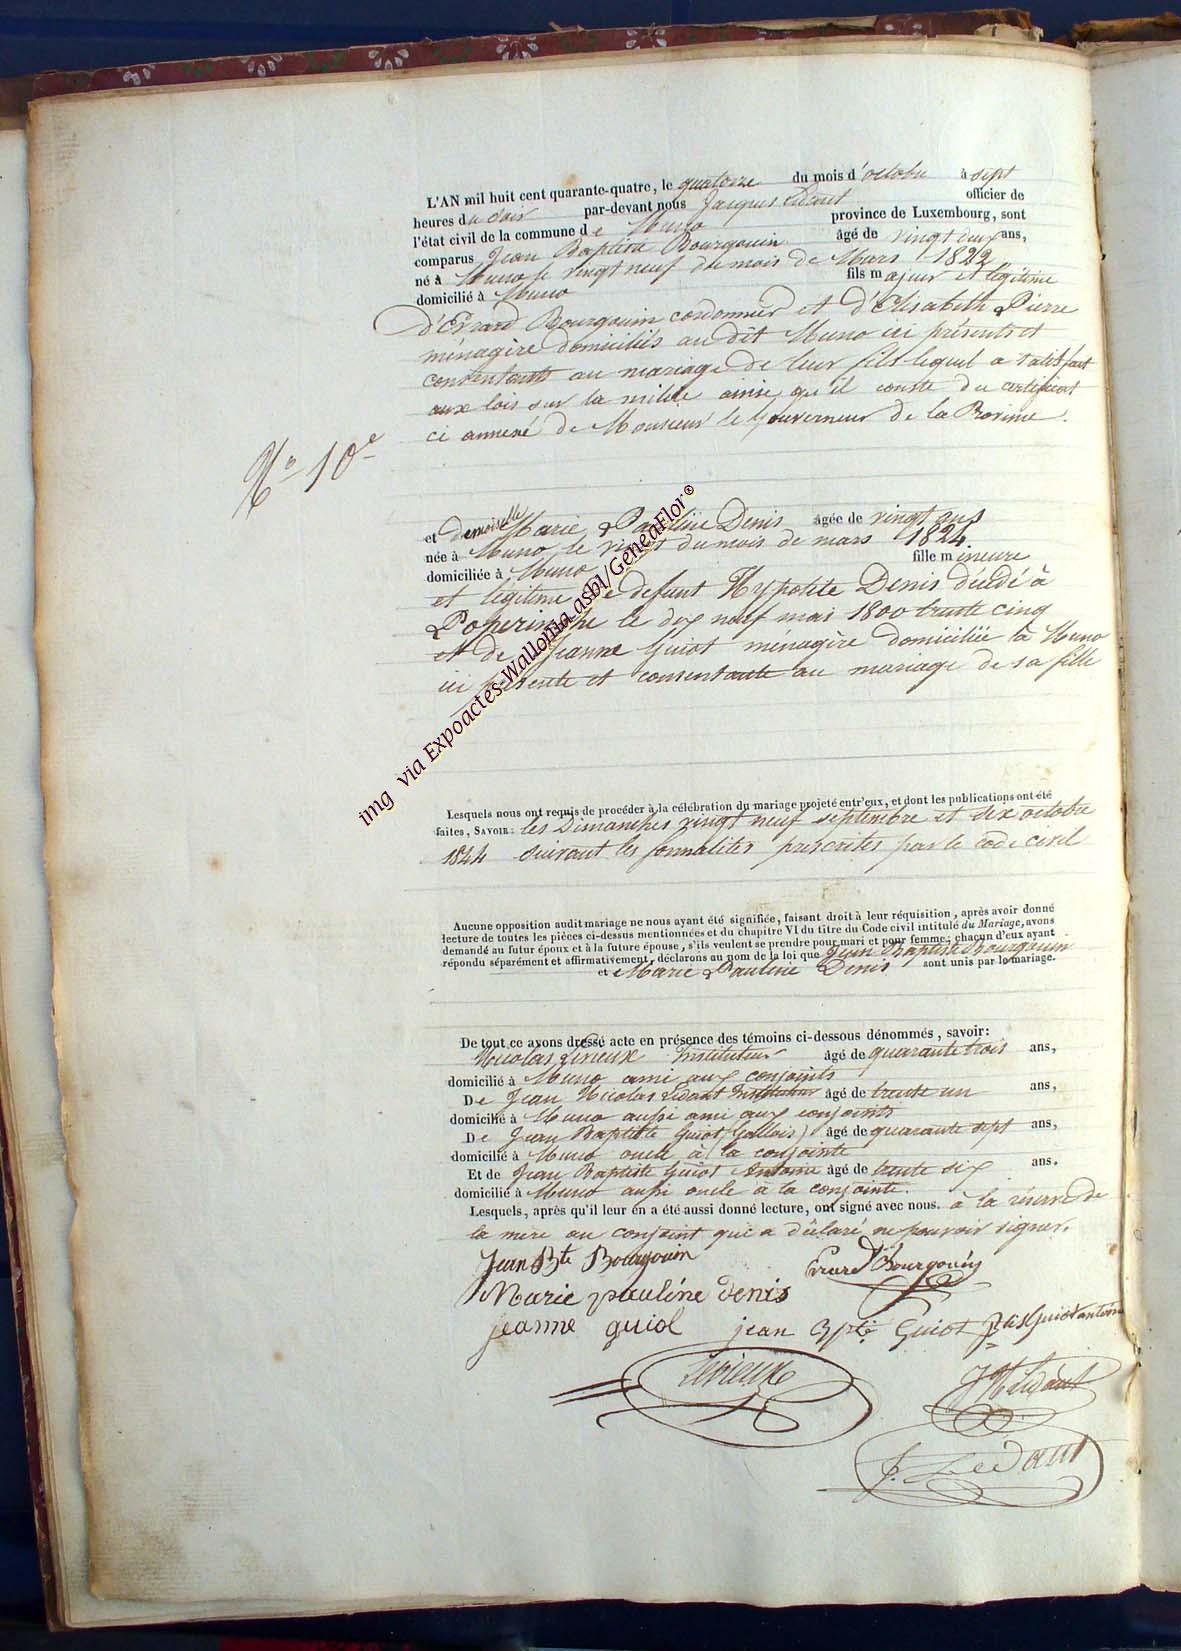 L'AN mil huit cent quarante-quatre, le quatorze du mois d'octobre à sept
heures du soir par-devant nous Jacques Ledant officier de
l'état civil de la commune de Muno province de Luxembourg, sont
comparus Jean Baptiste Bourgouin âgé de vingt deux ans,
né à Muno le vingt neuf du mois de Mars 1822
domicilié à Muno fils majeur et légitime
d'Evrard Bourgouin cordonnier et d'Elisabeth Pierre
ménagère domiciliés au dit Muno ici présents et
consentants au mariage de leur fils lequel a satisfait
aux lois sur la milice ainsi qu'il conste du certificat
ci annexé de Monsieur le Gouverneur de la Province.
No 10e
et demoiselle Marie Pauline Denis âgée de vingt ans
née à Muno le vingt du mois de mars 1824
domiciliée à Muno fille mineure
et légitime de defunt Hypolite Denis décédé à
Poperinghe le dix neuf mai 1800 trente cinq
et de Jeanne Guiot ménagère domiciliée à Muno
ici présente et consentante au mariage de sa fille
img via Expoactes-Wallonia.asbl/GeneaFlor®
Lesquels nous ont requis de procéder à la célébration du mariage projeté entr'eux, et dont les publications ont été
faites, SAVOIR: les Dimanches vingt neuf septembre et six octobre
1844 suivant les formalités prescrites par le code civil
Aucune opposition audit mariage ne nous ayant été signifiée, faisant droit à leur réquisition, après avoir donné
lecture de toutes les pièces ci-dessus mentionnées et du chapitre VI du titre du Code civil intitulé du Mariage, avons
demandé au futur époux et à la future épouse, s'ils veulent se prendre pour mari et pour femme; chacun d'eux ayant
répondu séparément et affirmativement, déclarons au nom de la loi que Jean Baptiste Bourgouin
et Marie Pauline Denis sont unis par le mariage.
De tout ce avons dressé acte en présence des témoins ci-dessous dénommés, savoir:
Nicolas Lerieux Instituteur âgé de quarante trois ans,
domicilié à Muno ami aux conjoints
De Jean Nicolas Ledant Instituteur âgé de trente un ans,
domicilié à Muno aussi ami aux conjoints
De Jean Baptiste Guiot (Gallois) âgé de quarante sept ans,
domicilié à Muno oncle à la conjointe
Et de Jean Baptiste Guiot Antoine âgé de trente six ans.
domicilié à Muno aussi oncle à la conjointe.
Lesquels, après qu'il leur en a été aussi donné lecture, ont signé avec nous. à la réserve de
la mère au conjoint qui a déclaré ne pouvoir signer.
Jean Bte Bourgouin Evrard Bourgouin
Marie pauline denis
jeanne guiot jean Bpte Guiot JBis Guiot antoine
Lerieux JN Ledant
J. Ledant